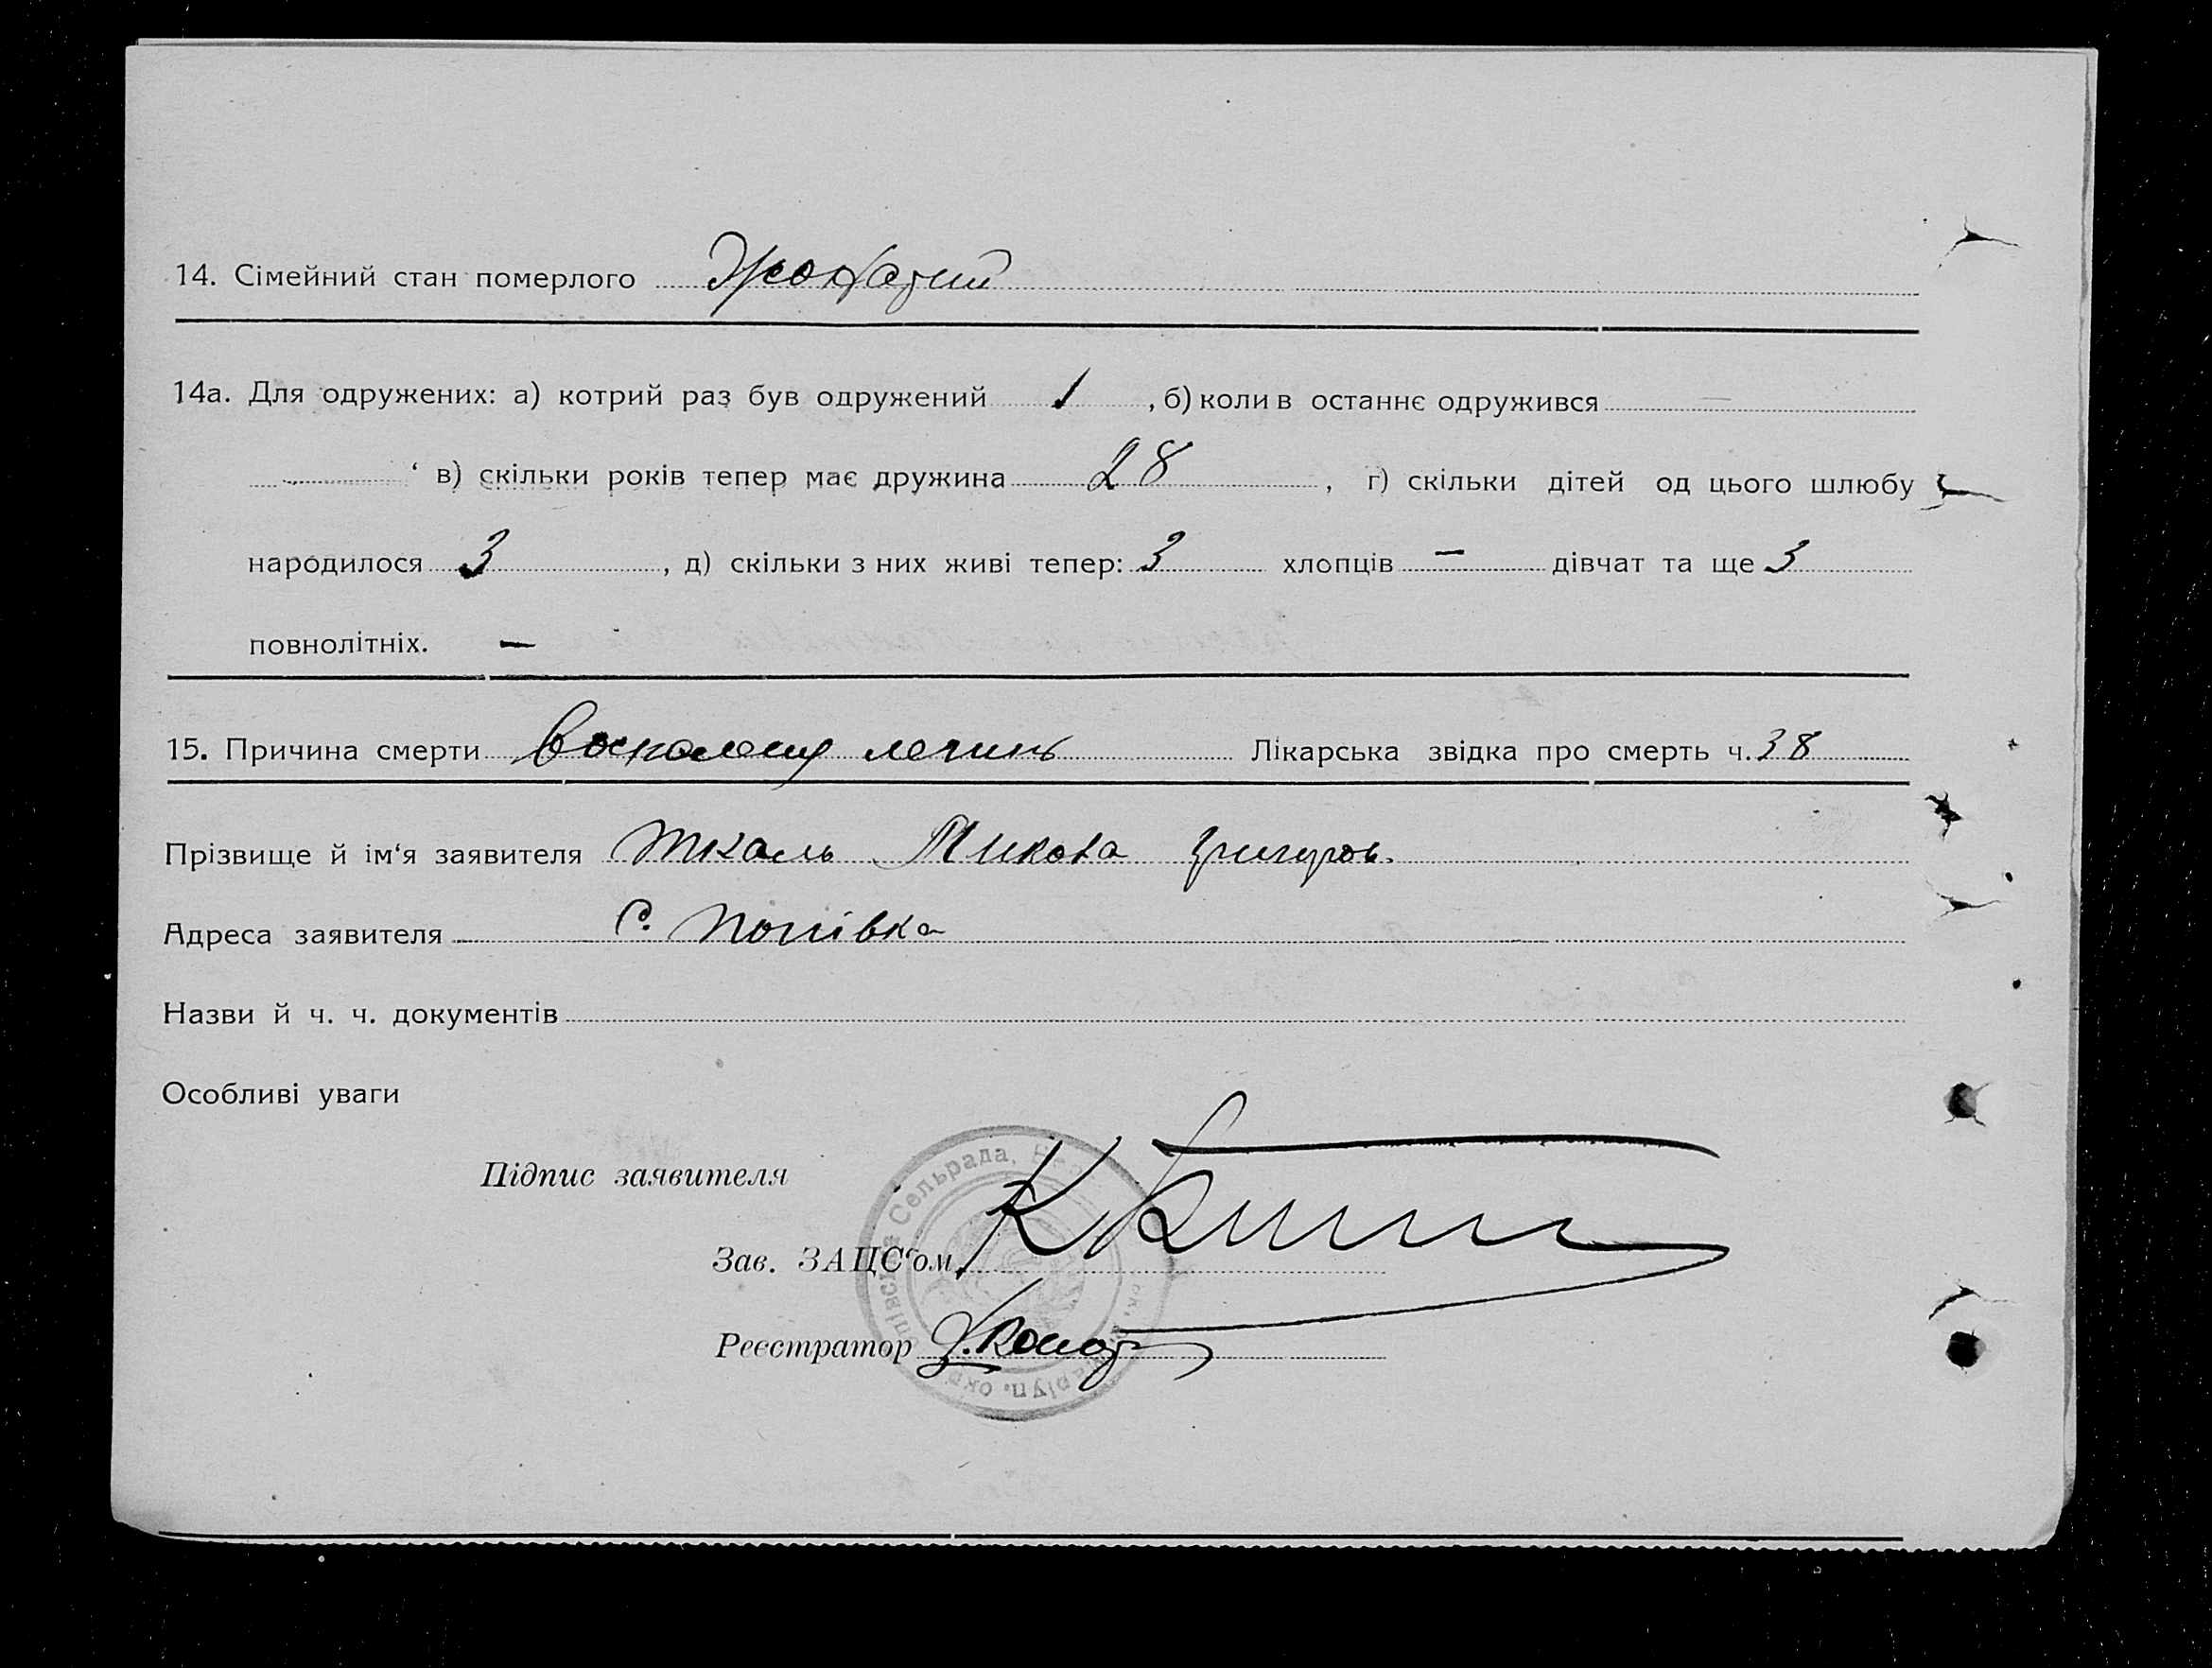 14. Сімейний стан померлого Жонатий
14а. Для одружених: а) котрий раз був одружений 1 , б) коли в останнє одружився —
‘ в) скільки років тепер має дружина 28 , г) скільки дітей од цього шлюбу
народилося 3 , д) скільки з них живі тепер: 3 хлопців — дівчат та ще 3
повнолітніх. —
15. Причина смерти Лікарська звідка про смерть ч. 38
Прізвище й ім‘я заявителя Ткаль Микола Григоров.
Адреса заявителя С. Попівка
Назви й ч. ч. документів
Особливі уваги
Підпис заявителя
Сельрада,
Зав. ЗАЦС‘ом
Реєстратор